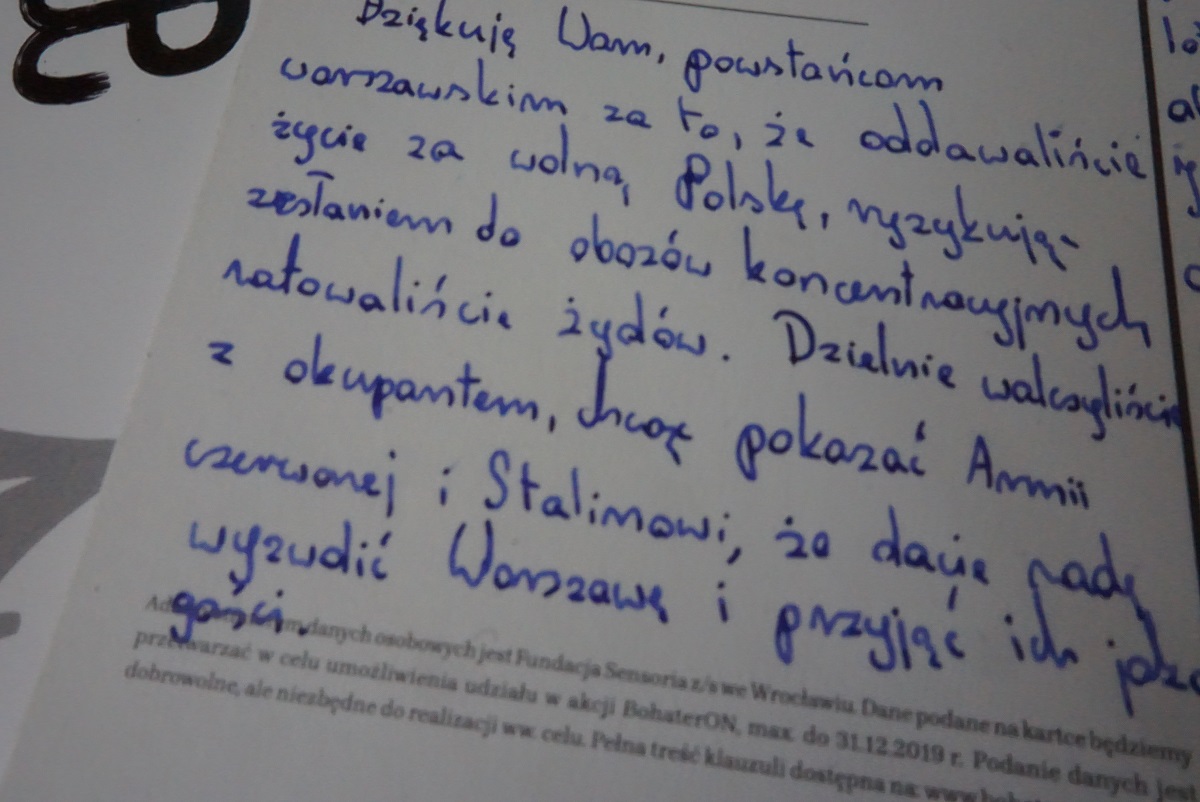 Dziękuję Wam, powstańcom
warszawskim za to, że oddawaliście
życie za wolną Polskę, ryzykując
zesłaniem do obozów koncentracyjnych
ratowaliście żydów. Dzielnie walczyliście
z okupantem, chcąc pokazać Armii
czerwonej i Stalinowi, że dacie radę
wyzwolić Warszawę i przyjąć ich jako
gości.
danych osobowych jest Fundacja Sensoria z/s we Wrocławiu. Dane podane na kartce będziemy
przetwarzać w celu umożliwienia udziału w akcji BohaterON, max. do 31.12.2019 r. Podanie danych jest
dobrowolne, ale niezbędne do realizacji ww. celu. Pełna treść klauzuli dostępna na: